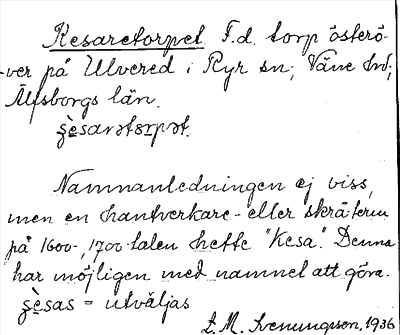 Kesaretorpet F.d. torp österö-
ver på Ulvered i Ryr sn, Väne hd,
Älfsborgs län.
Namnanledningen ej viss,
men en hantverkare- eller
på 1600-, 1700-talen hette "Kesa". Denna
har möjligen med namnet att göra.
= utväljas
L.M. Svenungsson, 1936